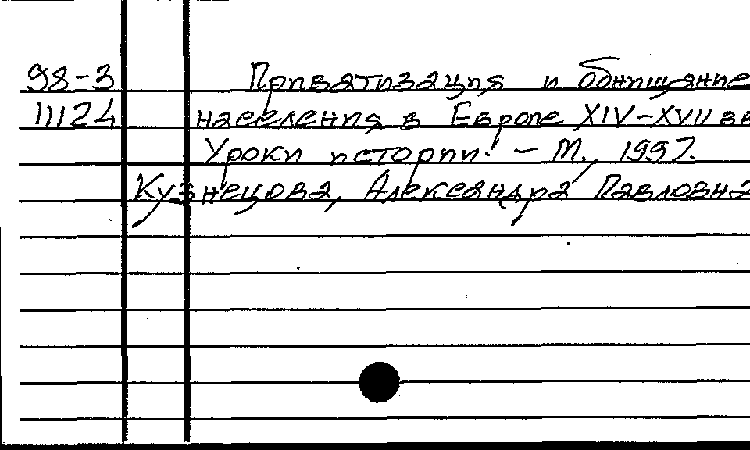 98-3 Приватизация и обнищание
11124 населения в Европе XIV-XVII вв
Уроки истории. - М., 1997.
Кузнецова, Александра Павловна